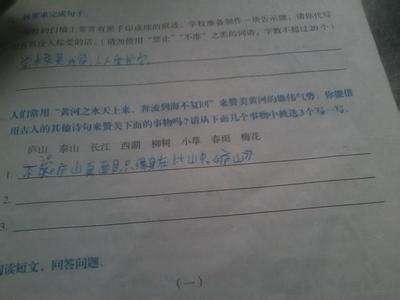 按要求完成句子。
校的门墙上常常有黑手印或球的痕迹,学校准备制作一块告示牌,请你代写
让人接受的话。(请勿使用“禁止”“不准”之类的词语,字数不超过20个)
人们常用“黄河之水天上来,奔流到海不复回”来赞美黄河的雄伟气势,你能借
用古人的其他诗句来赞美下面的事物吗?请从下面几个事物中挑选3个写一写。
庐山 泰山 长江 西湖 柳树 小草 春雨 梅花
1. 不识庐山真面目,只缘身在此山中。庐山
2.
3.
阅读短文,回答问题。
(一)